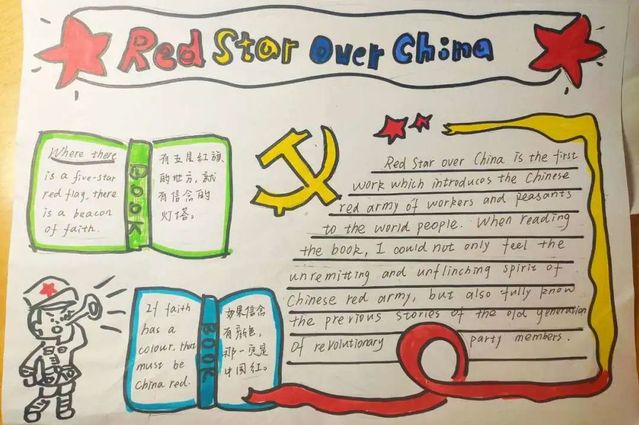 Red Star Over China
Where there
is a five-star
red flag, there
is a beacon
of faith.
BOOK
有五星红旗
的地方,就
有信念的
灯塔。
Red Star over China is the first
work which introduces the Chinese
red army of workers and peasants
to the world people. When reading
the book, I could not only feel the
unremitting and unflinching spirit of
Chinese red army, but also fully know
the previous stories of the old generation
of revolutionary party members.
If faith
has a
colour, that
must be
China red.
BOOK
如果信念
有颜色,
那一定是
中国红。